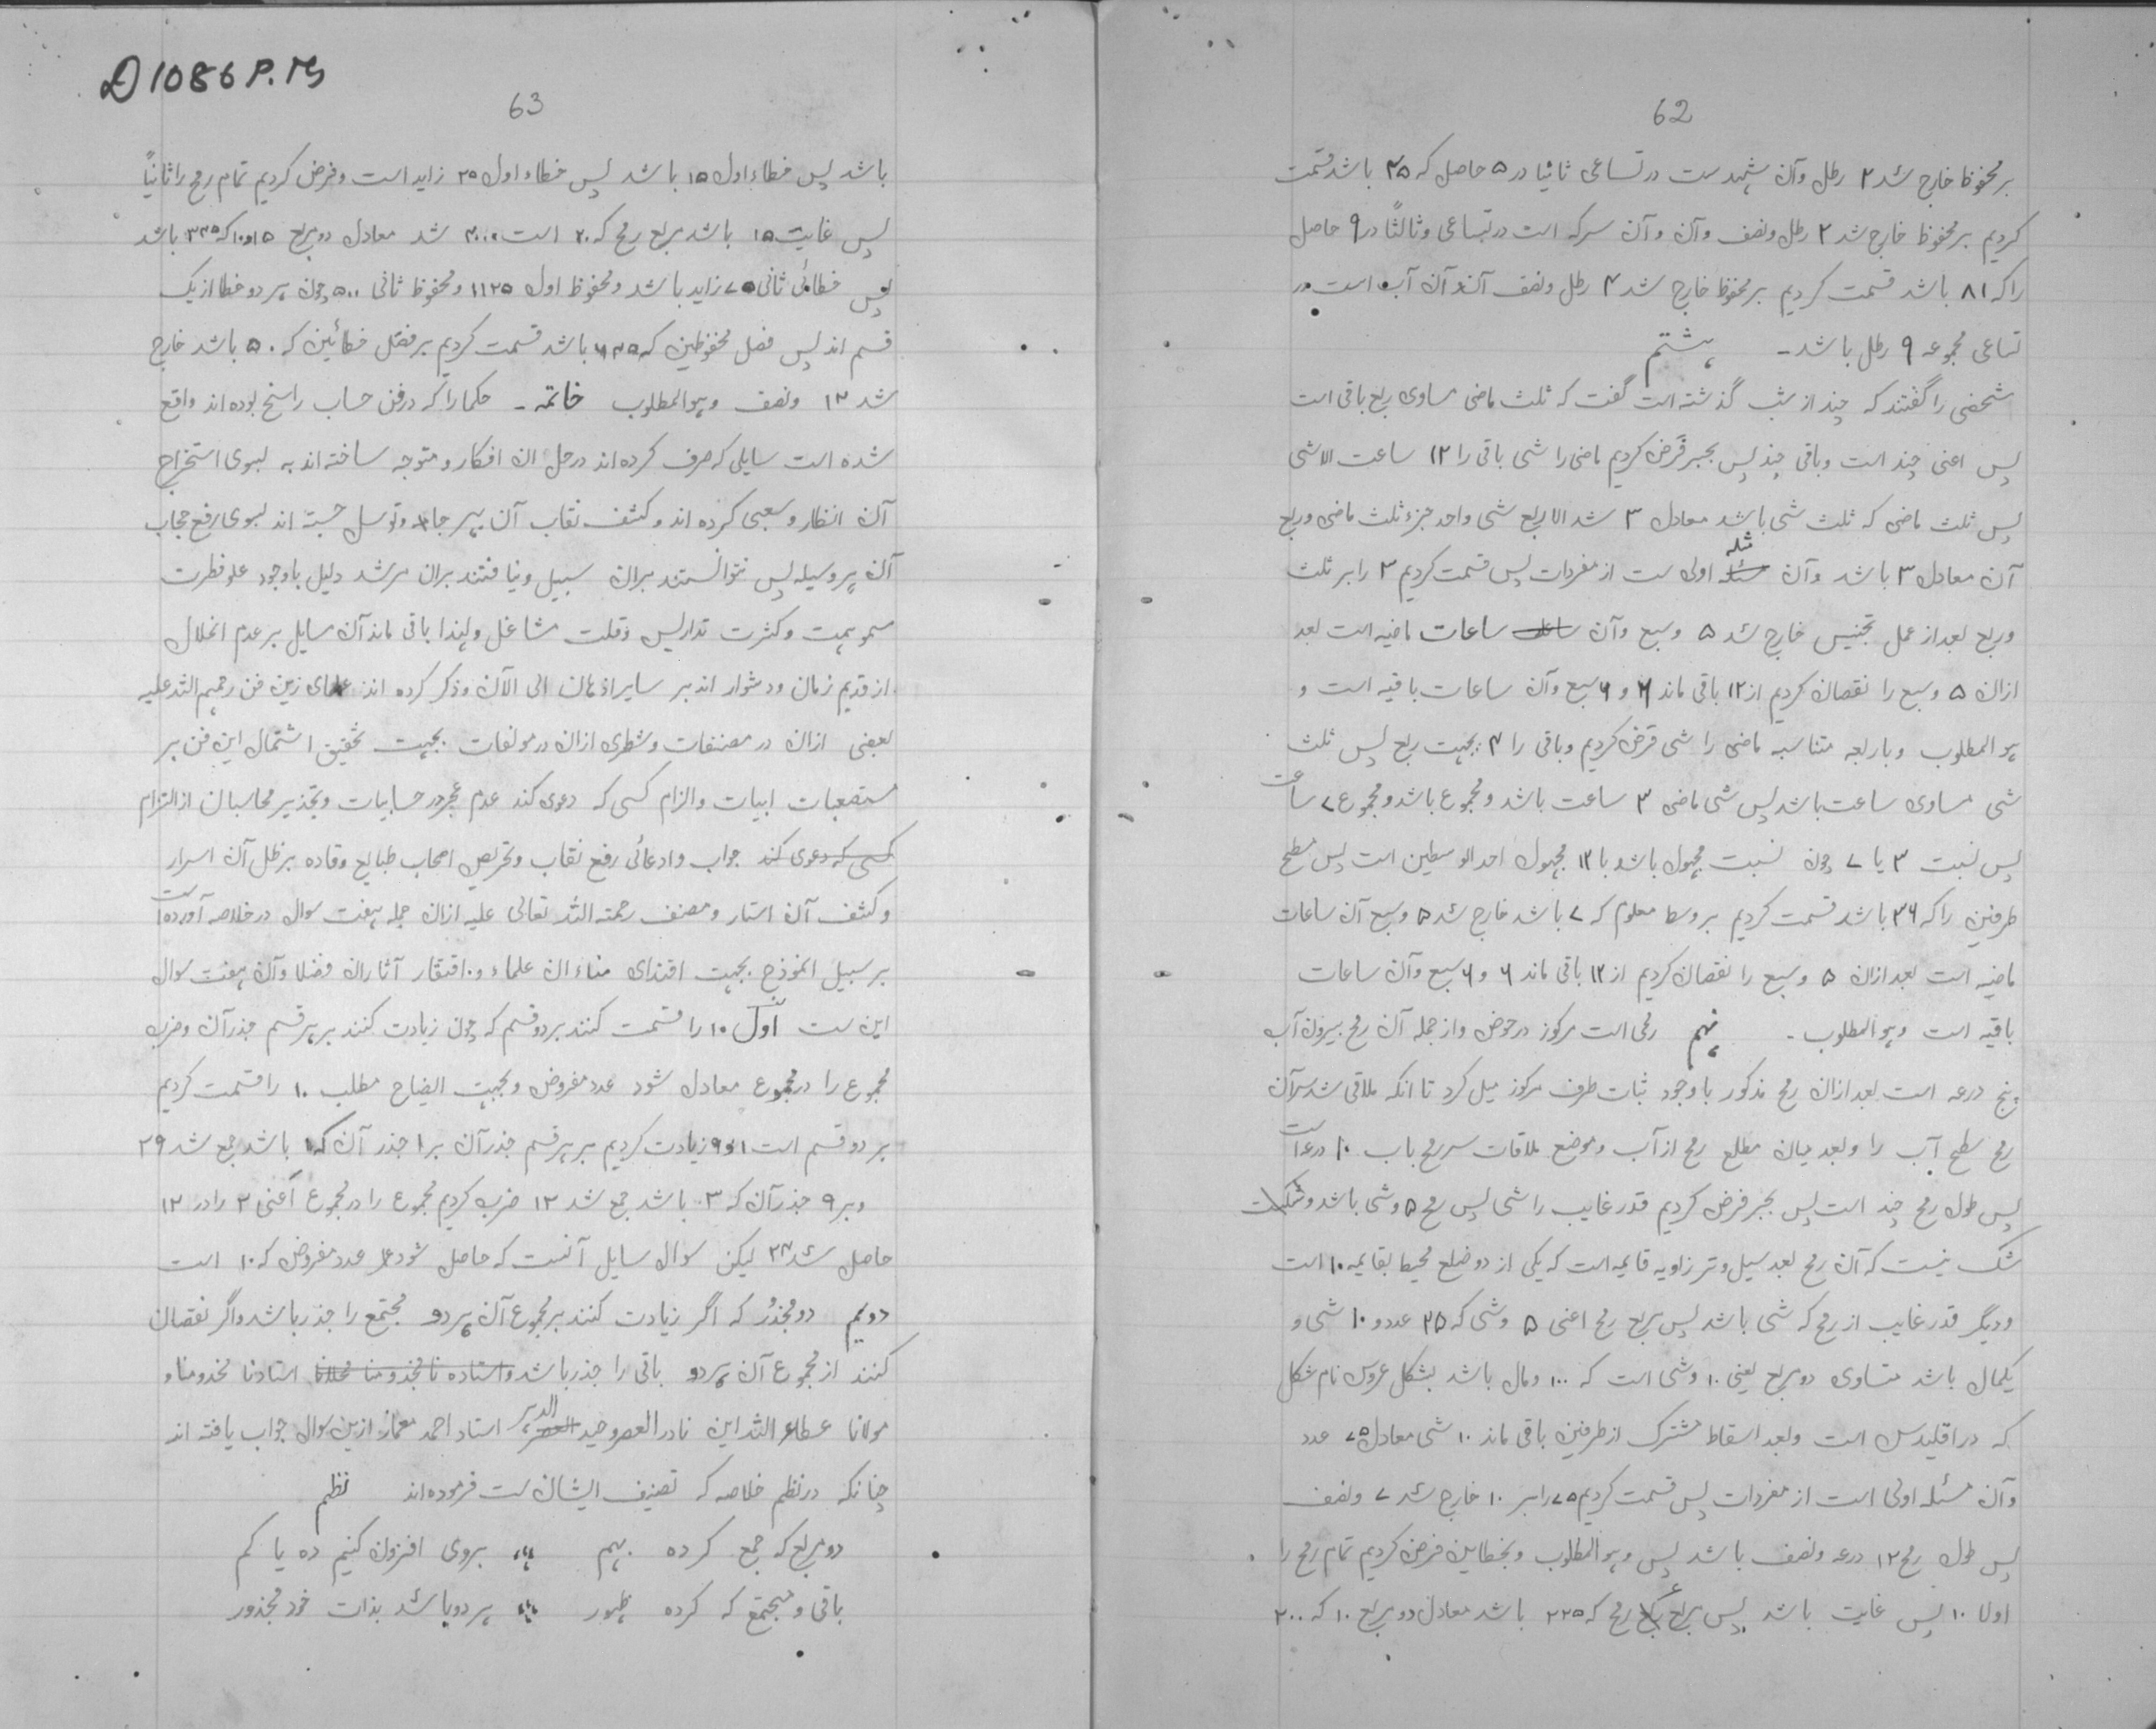 62
بر محفوظ خارج شد ۲ رطل وآن شهدست در تساعی ثانیا در ۵ حاصل که ۲۵ باشد قسمت
کردیم بر محفوظ خارج شد ۲ رطل ونصف وآن وآن سرکه است در تساعی وثالثاً در ۹ حاصل
را که ۸۱ باشد قسمت کردیم بر محفوظ خارج شد ۴ رطل ونصف آن وآن آب است در
تساعی مجموعه ۹ رطل باشد۔ هشتم
شخصی را گفتند که چند از شب گذشته است گفت که ثلث ماضی مساوی ربع باقی است
پس اعنی چند است وباقی چند پس بجبر فرض کردیم ماضی را شی باقی را ۱۲ ساعت الا شی
پس ثلث ماضی که ثلث شی باشد معادل ۳ شد الا ربع شی واحد جزء ثلث ماضی وربع
آن معادل ۳ باشد وآن مسئله اولی ست از مفردات پس قسمت کردیم ۳ را بر ثلث
وربع بعد از عمل تجنیس خارج شد ۵ وسبع وآن ساعات ماضیه است بعد
ازان ۵ وسبع را نقصان کردیم از ۱۲ باقی ماند ۶ و ۶ سبع وآن ساعات باقیه است و
هو المطلوب وبار بعه متناسبه ماضی را شی فرض کردیم وباقی را ۴ بجهت ربع پس ثلث
شی مساوی ساعت باشد پس شی ماضی ۳ ساعت باشد ومجموع باشد ومجموع ۷ ساعت
پس نسبت ۳ با ۷ چون نسبت مجهول باشد با ۱۲ مجهول احد الوسطین است پس مسطح
طرفین را که ۳۶ باشد قسمت کردیم بر وسط معلوم که ۷ باشد خارج شد ۵ وسبع آن ساعات
ماضیه است بعد ازان ۵ وسبع را نقصان کردیم از ۱۲ باقی ماند ۶ و ۶ سبع وآن ساعات
باقیه است وهو المطلوب۔ نهم رمحی است مرکوز در حوض واز جمله آن رمح بیرون آب
پنج درعه است بعد ازان رمح مذکور با وجود ثبات طرف مرکوز میل کرد تا انکه ملاقی شد سر آن
رمح سطح آب را وبعد میان مطلع رمح از آب وموضع ملاقات سر رمح باب ۱۰ درعه است
پس طول رمح چند است پس بجبر فرض کردیم قدر غایب را شی پس رمح ۵ وشی باشد
شک نیست که آن رمح بعد میل وتر زاویه قایمه است که یکی از دو ضلع محیط بقایمه ۱۰ است
ودیگر قدر غایب از رمح که شی باشد پس مربع رمح اعنی ۵ وشی که ۲۵ عدد و ۱۰ شی و
یکمال باشد متساوی دو مربع یعنی ۱۰ وشی است که ۱۰۰ ومال باشد بشکل عروس نام شکل
که در اقلیدس است وبعد اسقاط مشترک از طرفین باقی ماند ۱۰ شی معادل ۷۵ عدد
وآن مسئله اولی است از مفردات پس قسمت کردیم ۷۵ را بر ۱۰ خارج شد ۷ ونصف
پس طول رمح ۱۲ درعه ونصف باشد پس وهو المطلوب وبخطایین فرض کردیم تمام رمح را
اولا ۱۰ پس غایب باشد پس مربع رمح که ۲۲۵ باشد معادل دو مربع ۱۰ که ۲۰۰
D 1086 P. Ms
63
باشد پس خطاء اول ۱۵ باشد پس خطاء اول ۲۵ زاید است وفرض کردیم تمام رمح را ثانیاً
پس غایب ۱۵ باشد مربع رمح که ۲۰ است ۴۰۰ شد معادل دو مربع ۱۵ و ۱۰ که ۳۲۵ باشد
پس خطائی ثانی ۷۵ زاید باشد ومحفوظ اول ۱۱۲۵ ومحفوظ ثانی ۵۰۰ چون هر دو خطا از یک
قسم اند پس فضل محفوظین که ۶۲۵ باشد قسمت کردیم بر فضل خطائین که ۵۰ باشد خارج
شد ۱۲ ونصف وهو المطلوب خاتمه۔ حکما را که در فن حساب راسخ بوده اند واقع
شده است سایلی که صرف کرده اند در حل ان افکار ومتوجه ساخته اند به لسوی استخراج
آن انظار وسعی کرده اند وکشف نقاب آن بهر جا وتوسل جسته اند بسوی رفع حجاب
آن بهر وسیله پس نتوانستند بران سبیل ونیافتند بران مرشد دلیل باوجود علو فطرت
سمو همت وکثرت تدارلیس وقلت مشاغل ولهذا باقی ماند آن مسایل بر عدم انحلال
از قدیم زمان ودشوار اند بر سایر اذهان الی الآن وذکر کرده اند علمای زین فن رحمهم الله علیه
بعضی ازان در مصنفات وشطری ازان در مولفات بجهت تحقیق اشتمال این فن بر
مستصعبات ابیات والزام کسی که دعوی کند عدم عجز در حسابیات وتحذیر محاسبان از التزام
کسی که دعوی کند جواب وادعائی رفع نقاب وتحریص اصحاب طبایع وقاده بر ظل آن اسرار
وکشف آن استار ومصنف رحمته الله تعالی علیه ازان جمله هفت سوال در خلاصه آورده است
بر سبیل انموذج بجهت اقتدای علماء واقتفار آثاران فضلا وآن هفت سوال
این ست اول ۱۰ را قسمت کنند بر دو قسم که چون زیادت کنند بر هر قسم جذر آن وضرب
مجموع را در مجموع معادل شود عدد مفروض وبجهت ایضاح مطلب ۱۰ را قسمت کردیم
بر دو قسم است ۱ و ۹ زیادت کردیم بر هر قسم جذر آن بر ۱ جذر آن که ۱ باشد جمع شد ۲۹
وبر ۹ جذر آن که ۳ باشد جمع شد ۱۲ ضرب کردیم مجموع را در مجموع اعنی ۲ را در ۱۲
حاصل شد ۲۴ لیکن سوال سایل آنست که حاصل شود عدد مفروض که ۱۰ است
دویم دو مجذور که اگر زیادت کنند بر مجموع آن هر دو مجتمع را جذر باشد واگر نقصان
کنند از مجموع آن هر دو باقی را جذر باشد استادنا مخدومنا و
مولانا عطاء الله این نادر العصر وحید الدهر استاد احمد معمار ازین سوال جواب یافته اند
چنانکه در نظم خلاصه که تصنیف ایشان ست فرموده اند نظم
دو مربع که جمع کرده بهم بروی افزون کنیم ده یا کم
باقی ومجتمع که کرده ظهور هر دو باشد بذات خود مجذور